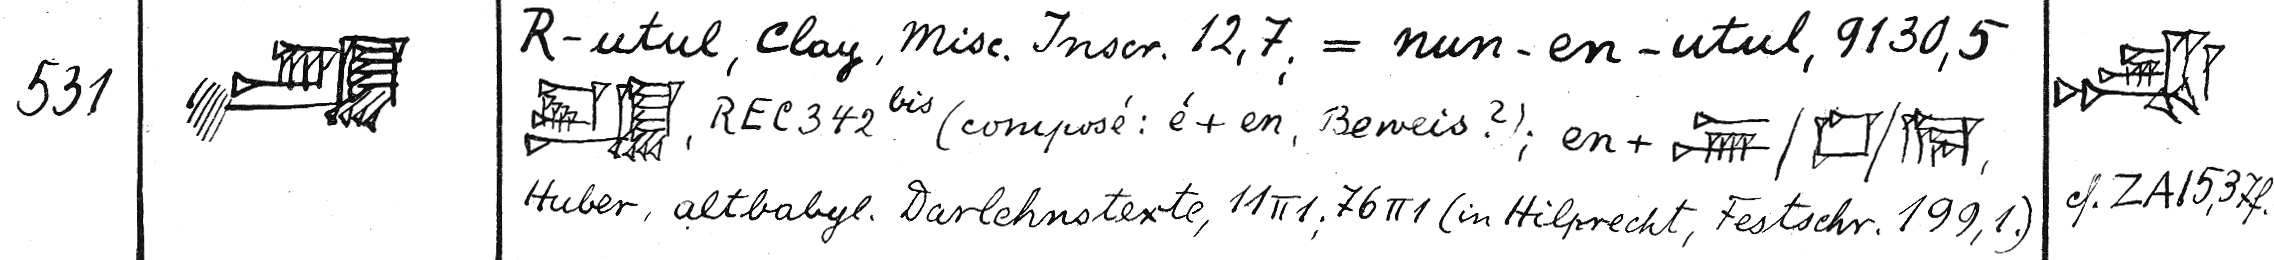 531 R-utul, Clay, Misc. Inscr. 12,7; = nun-en-utul, 9130,5
, REC 342 bis (composé: é + en, Beweis?); en + / / ,
Huber, altbabyl. Darlehnstexte, 11 π 1; 76 π 1 (in Hilprecht, Festschr. 199,1.) cf. ZA 15,37f.